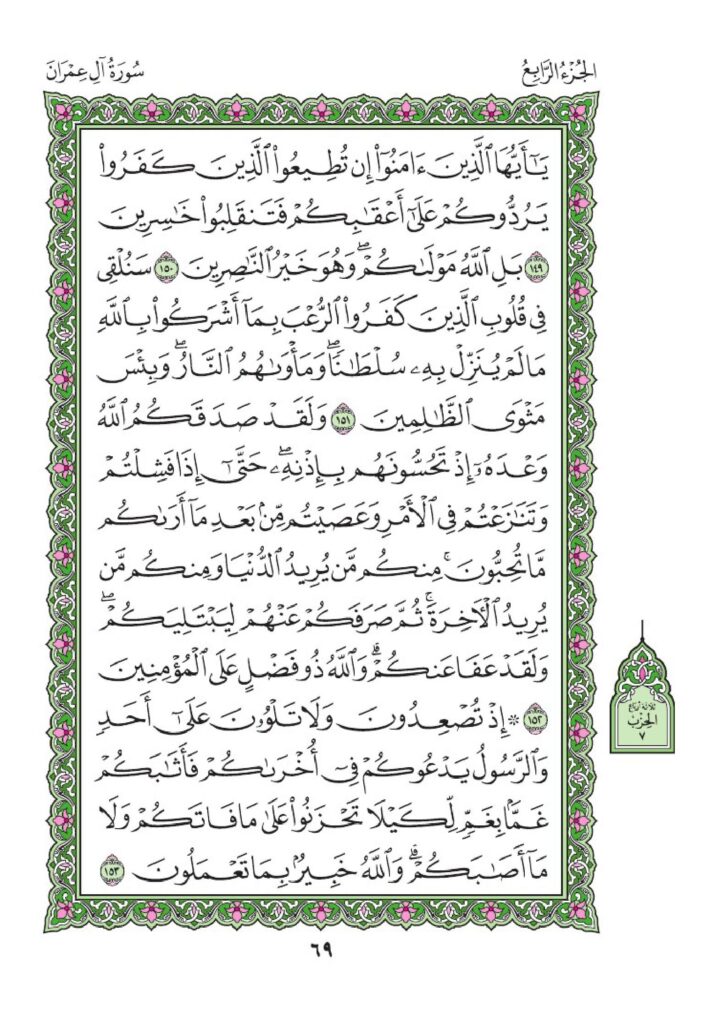 الجُزْءُ الرَّابِعُ
سُورَةُ آلِ عِمْرَانَ
يَـٰٓأَيُّهَا ٱلَّذِينَ ءَامَنُوٓاْ إِن تُطِيعُواْ ٱلَّذِينَ كَفَرُواْ
يَرُدُّوكُمْ عَلَىٰٓ أَعْقَـٰبِكُمْ فَتَنقَلِبُواْ خَـٰسِرِينَ
١٤٩ بَلِ ٱللَّهُ مَوْلَىٰكُمْۖ وَهُوَ خَيْرُ ٱلنَّـٰصِرِينَ ١٥٠ سَنُلْقِى
فِى قُلُوبِ ٱلَّذِينَ كَفَرُواْ ٱلرُّعْبَ بِمَآ أَشْرَكُواْ بِٱللَّهِ
مَا لَمْ يُنَزِّلْ بِهِۦ سُلْطَـٰنًاۖ وَمَأْوَىٰهُمُ ٱلنَّارُۖ وَبِئْسَ
مَثْوَى ٱلظَّـٰلِمِينَ ١٥١ وَلَقَدْ صَدَقَكُمُ ٱللَّهُ
وَعْدَهُۥٓ إِذْ تَحُسُّونَهُم بِإِذْنِهِۦۖ حَتَّىٰٓ إِذَا فَشِلْتُمْ
وَتَنَـٰزَعْتُمْ فِى ٱلْأَمْرِ وَعَصَيْتُم مِّنۢ بَعْدِ مَآ أَرَىٰكُم
مَّا تُحِبُّونَۚ مِنكُم مَّن يُرِيدُ ٱلدُّنْيَا وَمِنكُم مَّن
يُرِيدُ ٱلْـَٔاخِرَةَۚ ثُمَّ صَرَفَكُمْ عَنْهُمْ لِيَبْتَلِيَكُمْۖ
وَلَقَدْ عَفَا عَنكُمْۗ وَٱللَّهُ ذُو فَضْلٍ عَلَى ٱلْمُؤْمِنِينَ
١٥٢ ۞ إِذْ تُصْعِدُونَ وَلَا تَلْوُۥنَ عَلَىٰٓ أَحَدٍ
وَٱلرَّسُولُ يَدْعُوكُمْ فِىٓ أُخْرَىٰكُمْ فَأَثَـٰبَكُمْ
غَمًّۢا بِغَمٍّ لِّكَيْلَا تَحْزَنُواْ عَلَىٰ مَا فَاتَكُمْ وَلَا
مَآ أَصَـٰبَكُمْۗ وَٱللَّهُ خَبِيرٌۢ بِمَا تَعْمَلُونَ ١٥٣
ثلاثة أرباع
الحزب
٧
٦٩